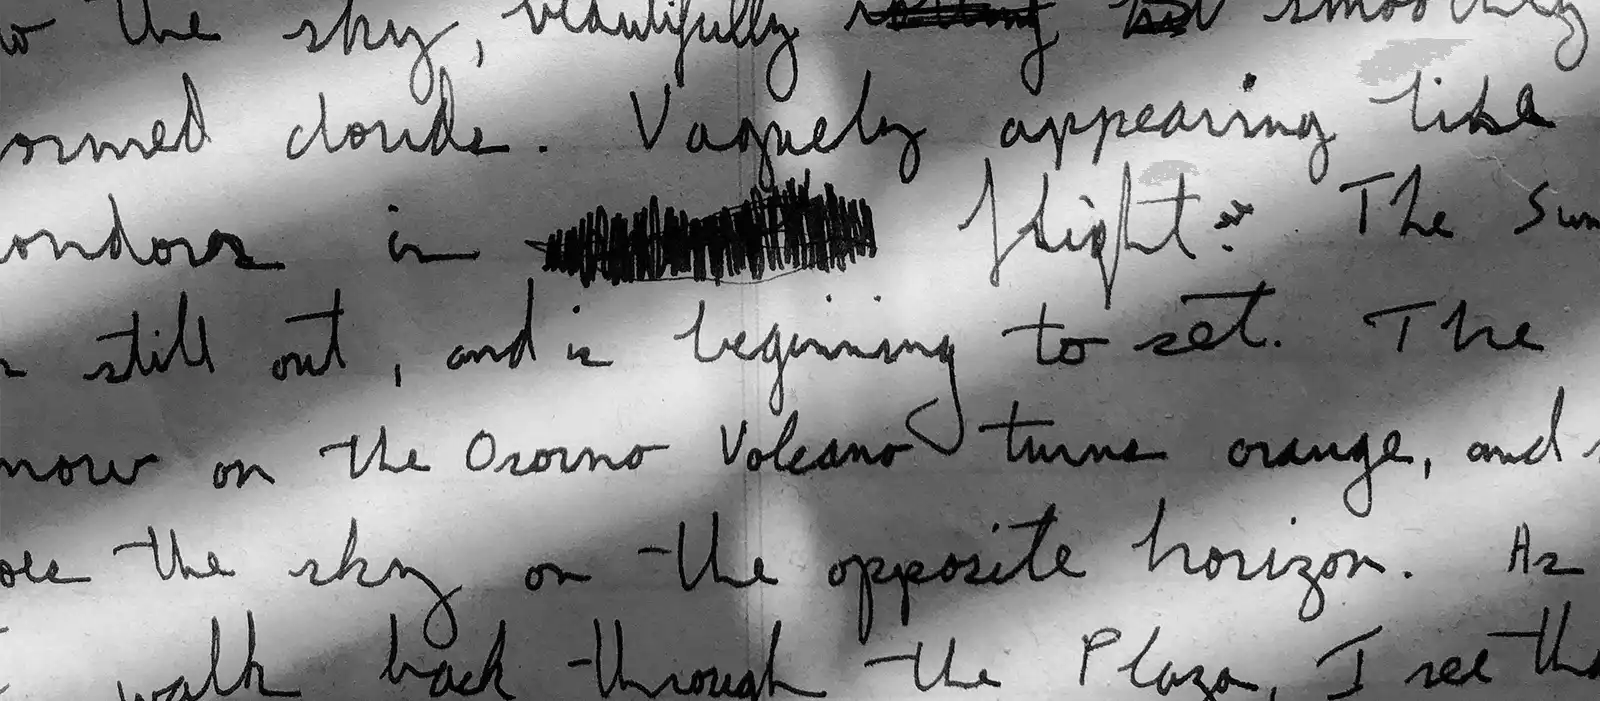 the sky, beautifully smoothly
ormed clouds. Vaguely appearing like
ondors in flight. The Sun
still out, and is beginning to set. The
now on the Osorno Volcano turns orange, and
oes the sky on the opposite horizon. As
I walk back through the Plaza, I see tha